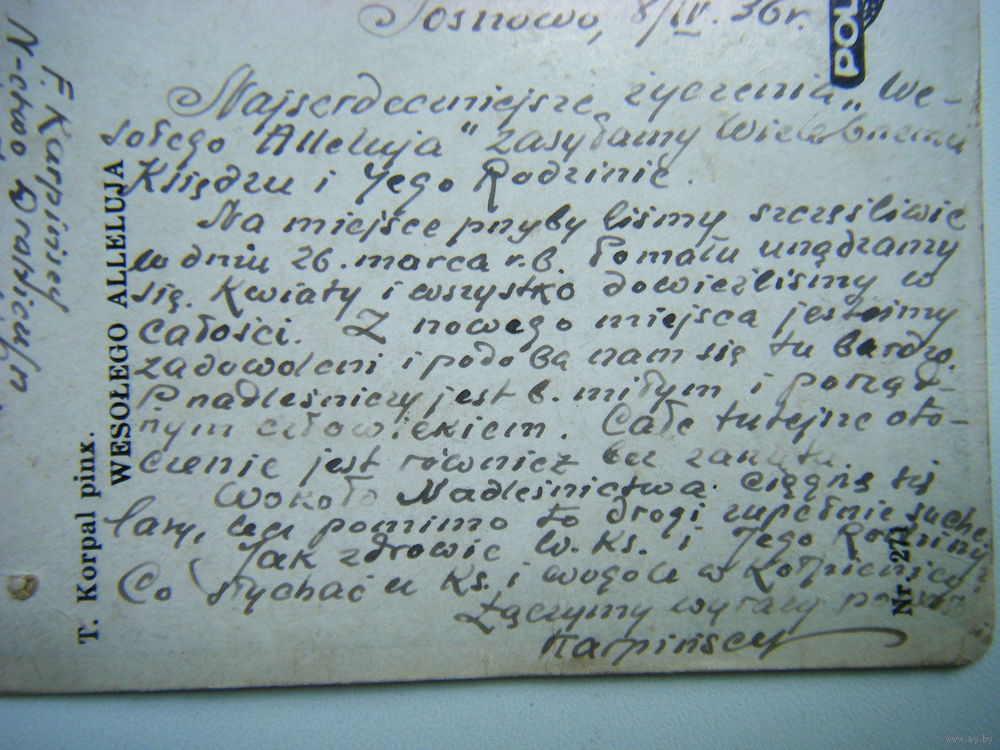 Sosnowo, 8/IV. 36 r.
Najserdeczniejsze życzenia „We-
sołego Alleluja" zasyłamy Wielebnemu
Księdzu i Jego Rodzinie.
Na miejsce przybyliśmy szczęśliwie
w dniu 26. marca r.b. Pomału urządzamy
się. Kwiaty i wszystko dowieźliśmy w
całości. Z nowego miejsca jesteśmy
zadowoleni i podoba nam się tu bardzo.
P. nadleśniczy jest b. miłym i porząd-
nym człowiekiem. Całe tutejsze oto-
czenie jest również bez zarzutu.
Wokoło Nadleśnictwa ciągną się
lasy, lecz pomimo to drogi zupełnie suche.
Jak zdrowie W. Ks. i Jego Rodziny?
Co słychać u Ks. i wogóle w
Łączymy wyrazy
Karpińscy
F. Karpińscy
N-ctwo
WESOŁEGO ALLELUJA
T. Korpal pinx.
Nr. 271
POL
www.ay.by